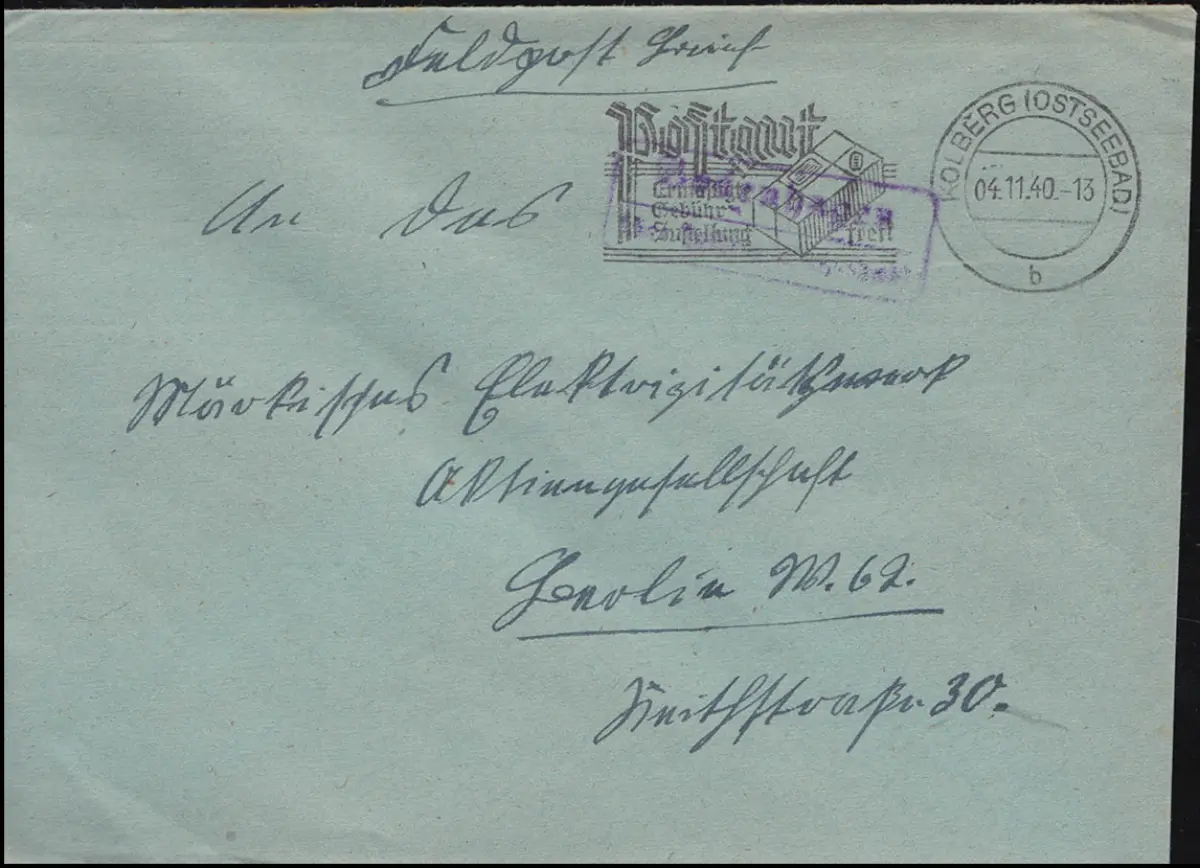 Feldpost Brief
Postamt
Ermäßigte
Gebühr
Zustellung frei!
KOLBERG (OSTSEEBAD)
04.11.40.-13
b
An das
Märkisches Elektrizitätswerk
Aktiengesellschaft
Berlin W. 62.
Keithstraße 30.